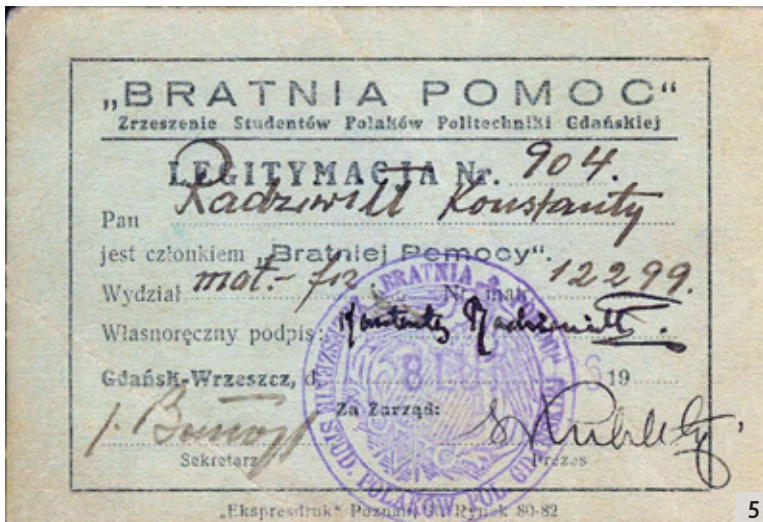 „BRATNIA POMOC“
Zrzeszenie Studentów Polaków Politechniki Gdańskiej
LEGITYMACJA Nr. 904.
Pan Radziwiłł Konstanty
jest członkiem „Bratniej Pomocy“.
Wydział mat.-fiz Nr. mak. 12299.
Własnoręczny podpis: Konstanty Radziwiłł
Gdańsk-Wrzeszcz, d. 19
Za Zarząd:
Sekretarz Prezes
BRATNIA
STUD. POLAKÓW POL.
„Ekspresdruk“ Poznań, St. Rynek 80-82
5